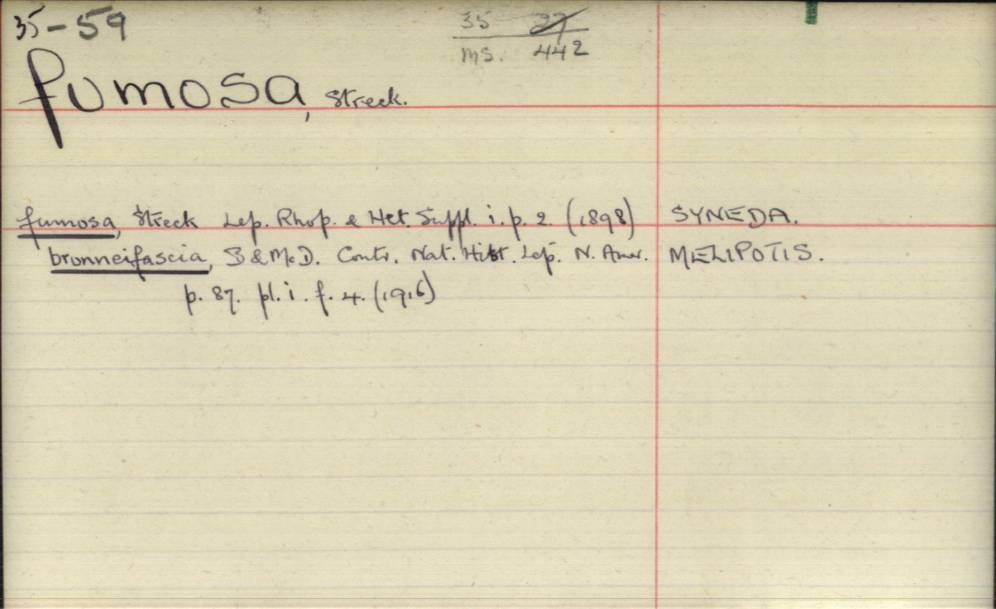 35-59
35 27
ms. 442
fumosa, Streck.
fumosa, Streck Lep. Rhop. & Het. Suppl. i. p. 2. (1898) SYNEDA.
brunneifascia, B & McD. Contr. Nat. Hist. Lep. N. Amer. MELIPOTIS.
p. 87. pl. i. f. 4. (1916)